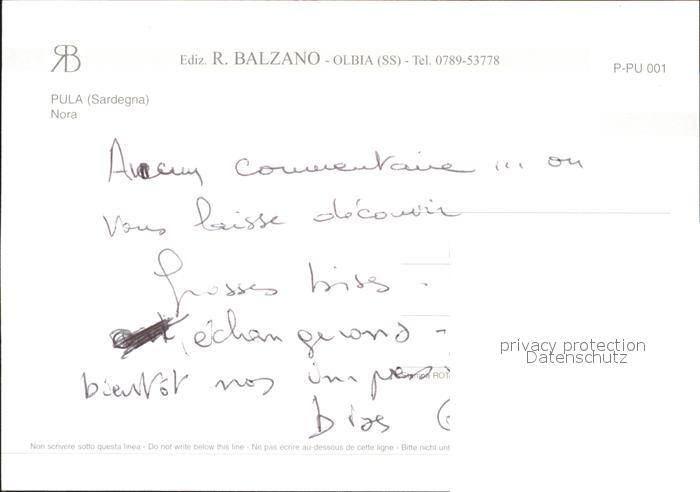 RB
Ediz. R. BALZANO - OLBIA (SS) - Tel. 0789-53778
P-PU 001
PULA (Sardegna)
Nora
Aucun commentaire ... on
vous laisse découvrir
Grosses bises -
échangerons -
bientôt nos impress
privacy protection
Datenschutz
ROT
Non scrivere sotto questa linea - Do not write below this line - Ne pas écrire au-dessous de cette ligne - Bitte nicht unt